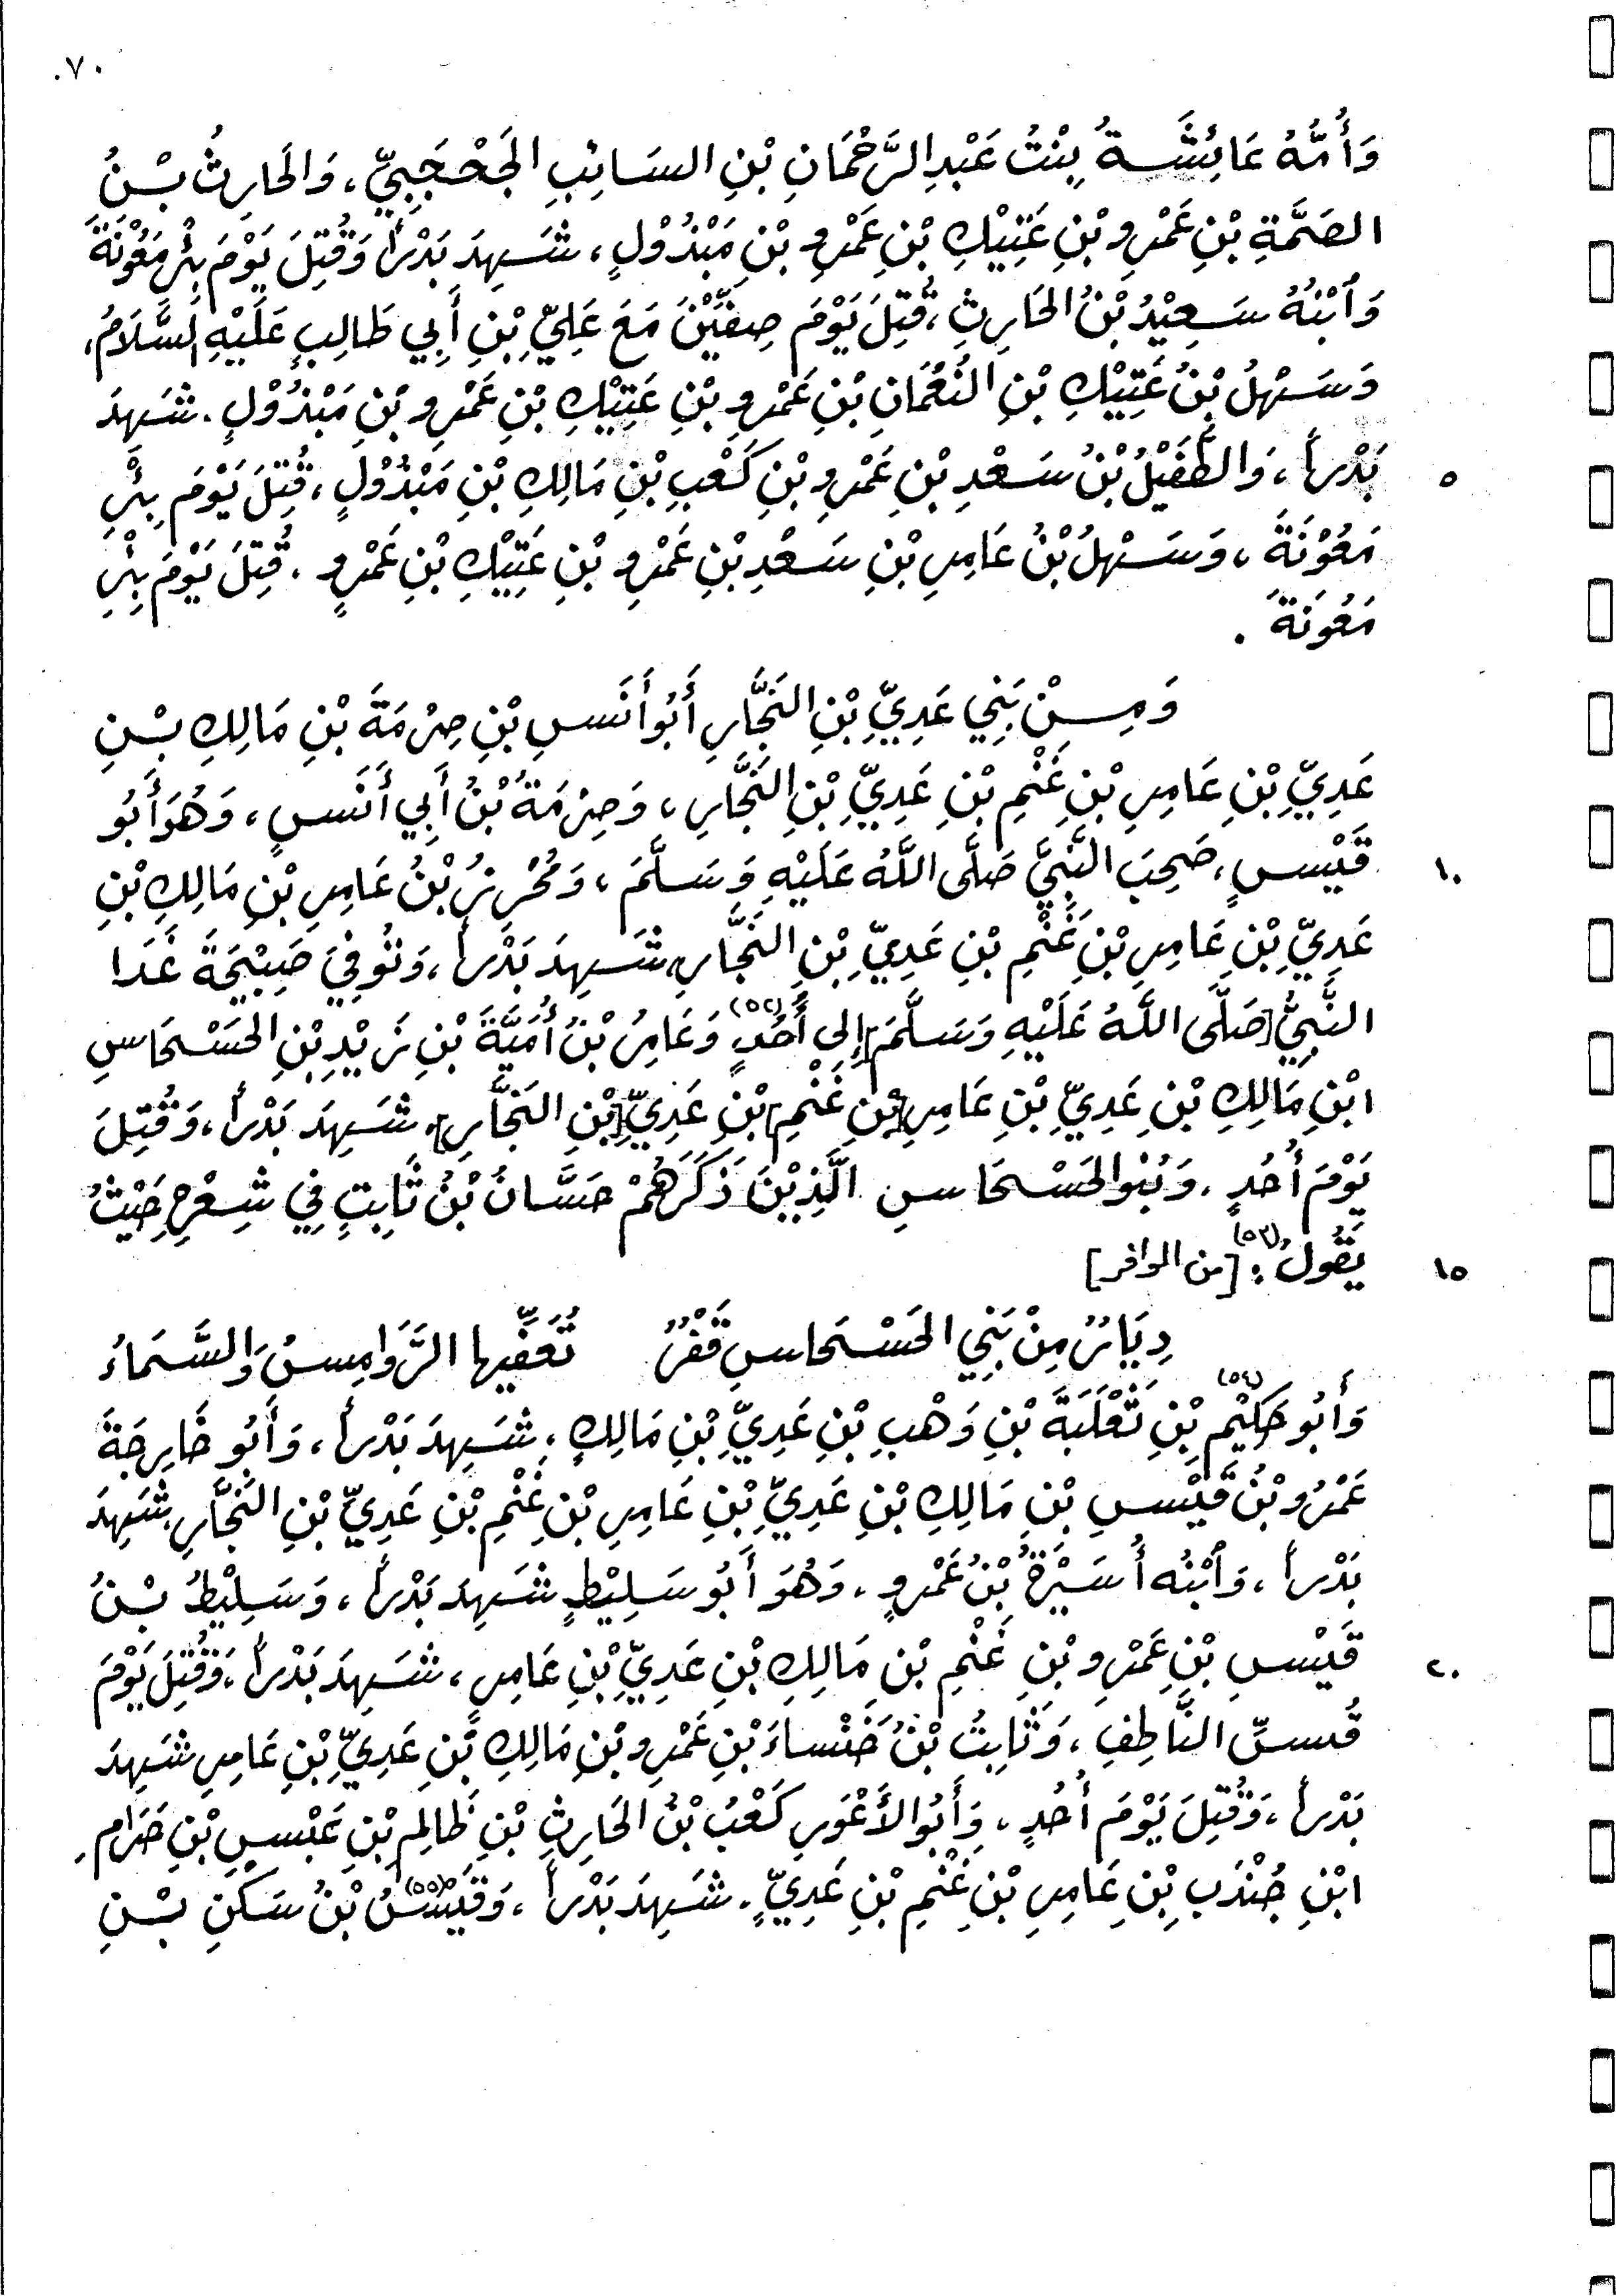 ٧٠.
وَأُمُّهُ عَائِشَةُ بِنْتُ عَبْدِ الرَّحْمَانِ بْنِ السَائِبِ الجَحْجَبِيِّ، وَالحَارِثُ بْنُ
الصَمَّةِ بْنِ عَمْرِو بْنِ عَتِيْكِ بْنِ عَمْرِو بْنِ مَبْذُوْلٍ، شَهِدَ بَدْراً وَقُتِلَ يَوْمَ بِئْرِ مَعُوْنَةَ
وَٱبْنُهُ سَعِيْدُ بْنُ الحَارِثِ، قُتِلَ يَوْمَ صِفِّيْنَ مَعَ عَلِيِّ بْنِ أَبِي طَالِبٍ عَلَيْهِ السَّلَامُ،
وَسَهْلُ بْنُ عَتِيْكِ بْنِ النُعْمَانِ بْنِ عَمْرِو بْنِ عَتِيْكِ بْنِ عَمْرِو بْنِ مَبْذُوْلٍ. شَهِدَ
٥ بَدْراً، وَالطُّفَيْلُ بْنُ سَعْدِ بْنِ عَمْرِو بْنِ كَعْبِ بْنِ مَالِكِ بْنِ مَبْذُوْلٍ، قُتِلَ يَوْمَ بِئْرِ
مَعُوْنَةَ، وَسَهْلُ بْنُ عَامِرِ بْنِ سَعْدِ بْنِ عَمْرِو بْنِ عَتِيْكِ بْنِ عَمْرٍو. قُتِلَ يَوْمَ بِئْرِ
مَعُونَةَ.
وَمِنْ بَنِي عَدِيِّ بْنِ النَجَّارِ أَبُو أَنَسِ بْنِ صِرْمَةَ بْنِ مَالِكِ بْنِ
عَدِيِّ بْنِ عَامِرِ بْنِ غَنْمِ بْنِ عَدِيِّ بْنِ النَجَّارِ، وَصِرْمَةُ بْنُ أَبِي أَنَسٍ، وَهُوَ أَبُو
١٠ قَيْسٍ، صَحِبَ النَّبِيَّ صَلَّى اللَّهُ عَلَيْهِ وَسَلَّمَ، وَمُحْرِزُ بْنُ عَامِرِ بْنِ مَالِكِ بْنِ
عَدِيِّ بْنِ عَامِرِ بْنِ غَنْمِ بْنِ عَدِيِّ بْنِ النَجَّارِ شَهِدَ بَدْراً، وَتُوفِيَ صَبِيْحَةَ غَدَا
النَّبِيُّ [صَلَّى اللَّهُ عَلَيْهِ وَسَلَّمَ] إِلى أُحُدٍ(٥٢) وَعَامِرُ بْنُ أُمَيَّةَ بْنِ زَيْدِ بْنِ الحَسْحَاسِ
ابْنِ مَالِكِ بْنِ عَدِيِّ بْنِ عَامِرِ [بْنِ غَنْمِ] بْنِ عَدِيِّ [بْنِ النَجَّارِ]. شَهِدَ بَدْراً، وَقُتِلَ
يَوْمَ أُحُدٍ. وَبُنو الحَسْحَاسِ الَّذِيْنَ ذَكَرَهُمْ حَسَّانُ بْنُ ثَابِتٍ فِي شِعْرِهِ حَيْثُ
١٥ يَقُولُ(٥٣): [من الوافر]
دِيَارٌ مِنْ بَنِي الحَسْحاسِ قَفْرٌ تُعَفِّيها الرَّوَامِسُ وَالسَّمَاءُ
وَأَبُو حَكِيْمِ(٥٤) بْنِ ثَعْلَبَةَ بْنِ وَهْبِ بْنِ عَدِيِّ بْنِ مَالِكٍ، شَهِدَ بَدْراً، وَأَبُو خَارِجَةَ
عَمْرُو بْنُ قَيْسِ بْنِ مَالِكِ بْنِ عَدِيِّ بْنِ عَامِرِ بْنِ غَنْمِ بْنِ عَدِيِّ بْنِ النَجَّارِ، شَهِدَ
بَدْراً، وَٱبْنُه أُسَيْرَةُ بْنُ عَمْرٍو، وَهُوَ أَبُو سَلِيْطٍ شَهِدَ بَدْراً، وَسَلِيْطُ بْنُ
٢٠ قَيْسِ بْنِ عَمْرِو بْنِ غَنْمِ بْنِ مَالِكِ بْنِ عَدِيِّ بْنِ عَامِرٍ، شَهِدَ بَدْراً، وَقُتِلَ يَوْمَ
قُسِّ النَّاطِفِ، وَثَابِتُ بْنُ خَنْساءَ بْنِ عَمْرِو بْنِ مَالِكِ بْنِ عَدِيِّ بْنِ عَامِرِ شَهِدَ
بَدْراً، وَقُتِلَ يَوْمَ أُحُدٍ، وَأَبُو الأَعْوَرِ كَعْبُ بْنُ الحَارِثِ بْنِ ظَالِمِ بْنِ عَبْسِ بْنِ حَرَامِ
ابْنِ جُنْدَبِ بْنِ عَامِرِ بْنِ غَنْمِ بْنِ عَدِيٍّ. شَهِدَ بَدْراً، وَقَيْسُ(٥٥) بْنُ سَكَنِ بْنِ